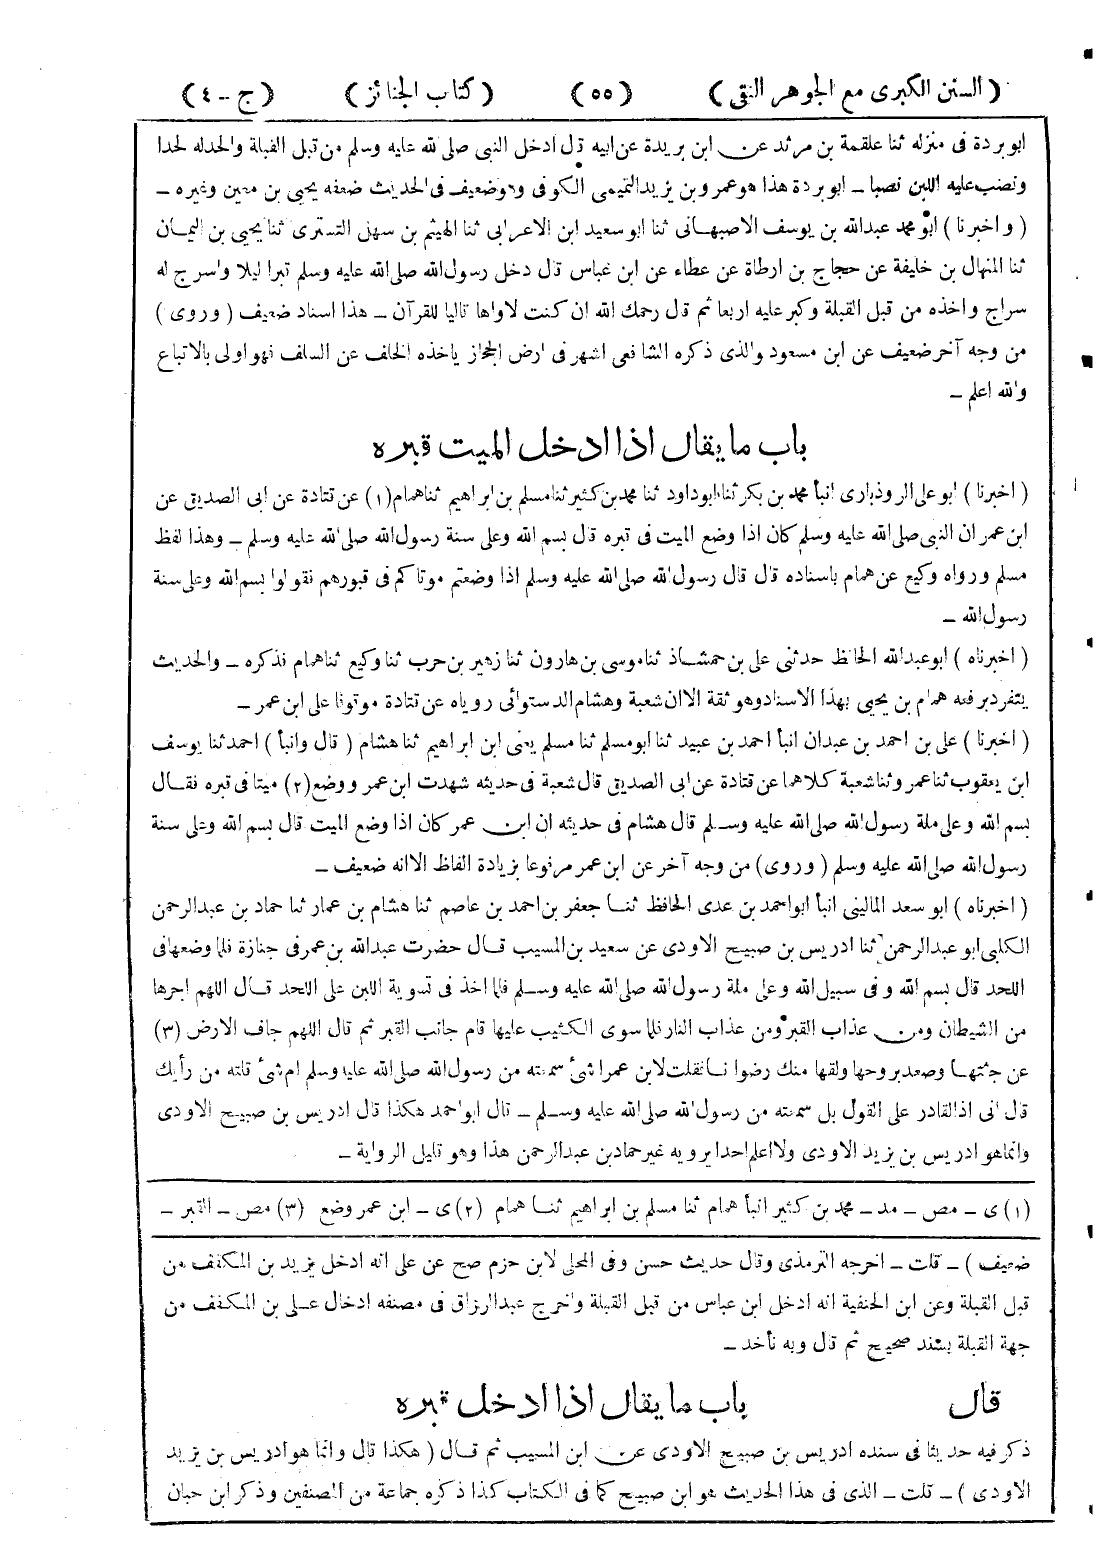 ( السنن الكبرى مع الجوهر النقى ) ( ٥٥ ) ( كتاب الجنائز ) ( ج ـ ٤ )
ابو بردة فى منزله ثنا علقمة بن مرثد عن ابن بريدة عن ابيه قال ادخل النبى صلى الله عليه وسلم من قبل القبلة والحدله لحدا
ونصب عليه اللبن نصبا ـ ابو بردة هذا هو عمرو بن يزيد التميمى الكوفى وهو ضعيف فى الحديث ضعفه يحيى بن معين وغيره ـ
( واخبرنا ) ابو محمد عبدالله بن يوسف الاصبهانى ثنا ابو سعيد ابن الاعرابى ثنا الهيثم بن سهل التسترى ثنا يحيى بن اليمان
ثنا المنهال بن خليفة عن حجاج بن ارطاة عن عطاء عن ابن عباس قال دخل رسول الله صلى الله عليه وسلم قبرا ليلا واسرج له
سراج واخذه من قبل القبلة وكبر عليه اربعا ثم قال رحمك الله ان كنت لاواها تاليا للقرآن ـ هذا اسناد ضعيف ( وروى )
من وجه آخر ضعيف عن ابن مسعود والذى ذكره الشافعى اشهر فى ارض الحجاز ياخذه الخلف عن السلف فهو اولى بالاتباع
والله اعلم ـ
باب ما يقال اذا ادخل الميت قبره
( اخبرنا ) ابو على الروذبارى انبأ محمد بن بكر ثنا ابو داود ثنا محمد بن كثير ثنا مسلم بن ابراهيم ثنا همام (١) عن قتادة عن ابى الصديق عن
ابن عمر ان النبى صلى الله عليه وسلم كان اذا وضع الميت فى قبره قال بسم الله وعلى سنة رسول الله صلى الله عليه وسلم ـ وهذا لفظ
مسلم ورواه وكيع عن همام باسناده قال قال رسول الله صلى الله عليه وسلم اذا وضعتم موتاكم فى قبورهم فقولوا بسم الله وعلى سنة
رسول الله ـ
( اخبرناه ) ابو عبدالله الحافظ حدثنى على بن حمشاذ ثنا موسى بن هارون ثنا زهير بن حرب ثنا وكيع ثنا همام فذكره ـ والحديث
يتفرد برفعه همام بن يحيى بهذا الاسناد وهو ثقة الا ان شعبة وهشام الدستوائى روياه عن قتادة موقوفا على ابن عمر ـ
( اخبرنا ) على بن احمد بن عبدان انبأ احمد بن عبيد ثنا ابو مسلم ثنا مسلم يعنى ابن ابراهيم ثنا هشام ( قال وانبأ ) احمد ثنا يوسف
ابن يعقوب ثنا عمر وثنا شعبة كلاهما عن قتادة عن ابى الصديق قال شعبة فى حديثه شهدت ابن عمر ووضع (٢) ميتا فى قبره فقال
بسم الله وعلى ملة رسول الله صلى الله عليه وسلم قال هشام فى حديثه ان ابن عمر كان اذا وضع الميت قال بسم الله وعلى سنة
رسول الله صلى الله عليه وسلم ( وروى ) من وجه آخر عن ابن عمر مرفوعا بزيادة الفاظ الا انه ضعيف ـ
( اخبرناه ) ابو سعد المالينى انبأ ابو احمد بن عدى الحافظ ثنا جعفر بن احمد بن عاصم ثنا هشام بن عمار ثنا حماد بن عبدالرحمن
الكلبى ابو عبدالرحمن ثنا ادريس بن صبيح الاودى عن سعيد بن المسيب قال حضرت عبدالله بن عمر فى جنازة فلما وضعها فى
اللحد قال بسم الله وفى سبيل الله وعلى ملة رسول الله صلى الله عليه وسلم فلما اخذ فى تسوية اللبن على اللحد قال اللهم اجرها
من الشيطان ومن عذاب القبر ومن عذاب النار فلما سوى الكثيب عليها قام جانب القبر ثم قال اللهم جاف الارض (٣)
عن جثتها وصعد بروحها ولقها منك رضوانا فقلت لابن عمر اشئ سمعته من رسول الله صلى الله عليه وسلم ام شئ قلته من رأيك
قال انى اذا لقادر على القول بل سمعته من رسول الله صلى الله عليه وسلم ـ قال ابو احمد هكذا قال ادريس بن صبيح الاودى
وانما هو ادريس بن يزيد الاودى ولا اعلم احدا يرويه غير حماد بن عبدالرحمن هذا وهو قليل الرواية ـ
(١) ى ـ مص ـ مد ـ محمد بن كثير انبأ همام ثنا مسلم بن ابراهيم ثنا همام (٢) ى ـ ابن عمر وضع (٣) مص ـ القبر ـ
ضعيف ) ـ قلت ـ اخرجه الترمذى وقال حديث حسن وفى المحلى لابن حزم صح عن على انه ادخل يزيد بن المكفف من
قبل القبلة وعن ابن الحنفية انه ادخل ابن عباس من قبل القبلة واخرج عبدالرزاق فى مصنفه ادخال على بن المكفف من
جهة القبلة بسند صحيح ثم قال وبه نأخذ ـ
قال باب ما يقال اذا ادخل قبره
ذكر فيه حديثا فى سنده ادريس بن صبيح الاودى عن ابن المسيب ثم قال ( هكذا قال وانما هو ادريس بن يزيد
الاودى ) ـ قلت ـ الذى فى هذا الحديث هو ابن صبيح كما فى الكتاب كذا ذكره جماعة من المصنفين وذكر ابن حبان